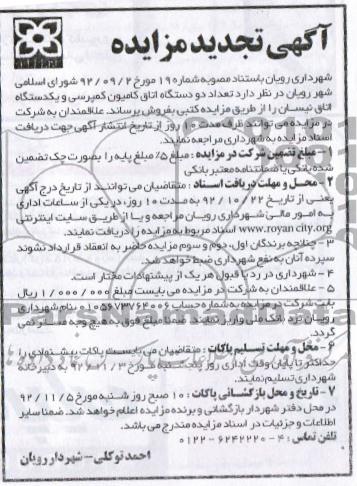 آگهی تجدید مزایده
شهرداری رویان باستناد مصوبه شماره ۱۹ مورخ ۹۲/۰۹/۲ شورای اسلامی
شهر رویان در نظر دارد تعداد دو دستگاه اتاق کامیون کمپرسی و یکدستگاه
اتاق نیسان را از طریق مزایده کتبی بفروش برساند. علاقمندان به شرکت
در مزایده می توانند ظرف مدت ۱۰ روز از تاریخ انتشار آگهی جهت دریافت
اسناد مزایده به شهرداری مراجعه نمایند.
۱- مبلغ تضمین شرکت در مزایده : مبلغ ۵٪ مبلغ پایه را بصورت چک تضمین
شده بانکی یا ضمانتنامه معتبر بانکی
۲- محل و مهلت دریافت اسناد : متقاضیان می توانند از تاریخ درج آگهی
یعنی از تاریخ ۹۲/۱۰/۲۲ به مدت ۱۰ روز، در یکی از ساعات اداری
به امور مالی شهرداری رویان مراجعه و یا از طریق سایت اینترنتی
www.royan city.org اسناد مربوط به مزایده را دریافت نمایند.
۳- چنانچه برندگان اول، دوم و سوم مزایده حاضر به انعقاد قرارداد نشوند
سپرده آنان به نفع شهرداری ضبط خواهد شد.
۴- شهرداری در رد یا قبول هر یک از پیشنهادات مختار است.
۵- علاقمندان به شرکت در مزایده می بایست مبلغ ۱/۰۰۰/۰۰۰ ریال
بابت شرکت در مزایده به شماره حساب ۰۱۰۵۶۷۳۷۶۴۰۰۶ بنام شهرداری
رویان نزد بانک ملی واریز نمایند. ضمنا مبلغ فوق به هیچ وجه مسترد نمی
گردد.
۶- محل و مهلت تسلیم پاکات : متقاضیان می بایست پاکات پیشنهادی را
حداکثر تا پایان وقت اداری روز پنجشنبه مورخ ۹۲/۱۱/۳ به دبیرخانه
شهرداری تسلیم نمایند.
۷- تاریخ و محل بازگشائی پاکات : ۱۰ صبح روز شنبه مورخ ۹۲/۱۱/۵
در محل دفتر شهردار بازگشائی و برنده مزایده اعلام خواهد شد. ضمنا سایر
اطلاعات و جزئیات در اسناد مزایده مندرج می باشد.
تلفن تماس : ۴-۶۲۴۲۲۲۰-۰۱۲۲
احمد توکلی - شهردار رویان